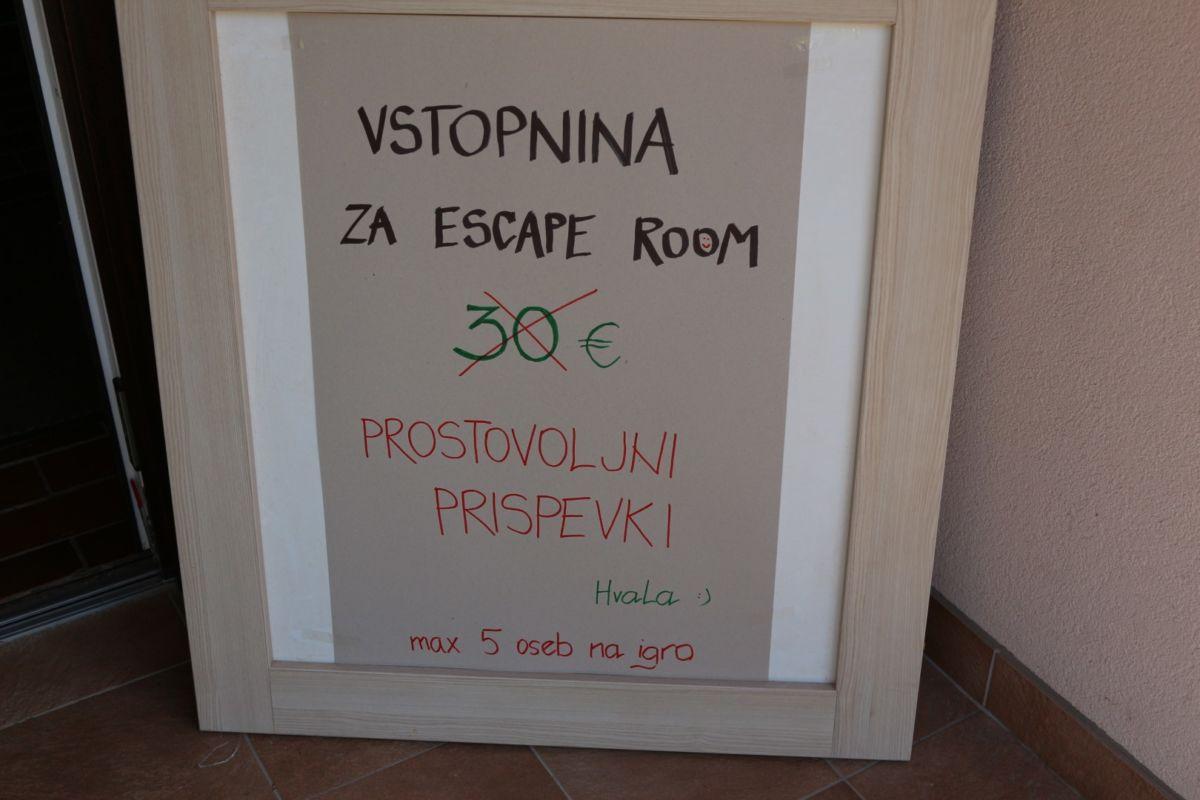 VSTOPNINA
ZA ESCAPE ROOM
30 €
PROSTOVOLJNI
PRISPEVKI
Hvala :)
max 5 oseb na igro